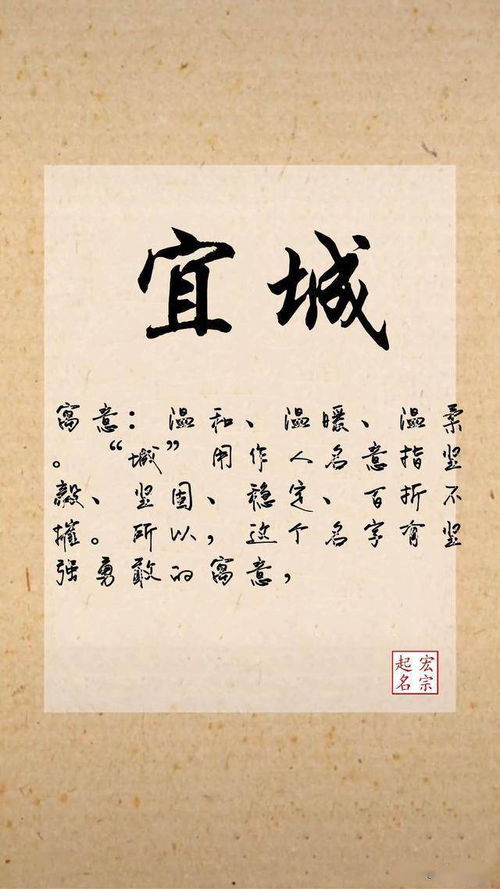 宜城
寓意：温和、温暖、温柔
。“城”用作人名意指坚
毅、坚固、稳定、百折不
摧。所以，这个名字有坚
强勇敢的寓意，
宏宗
起名